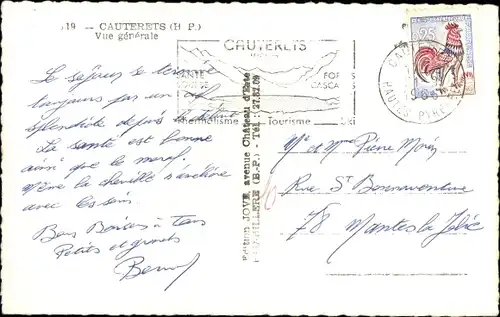 19 — CAUTERETS (H. P.)
Vue générale
Le séjour se
toujours par un
splendide depuis
La santé est bonne
ainsi que le moral,
Même la cheville s'améliore
avec les
Bons Baisers à Tous
Petits et grands
CAUTERETS
Thermalisme Tourisme Ski
25
HAUTES PYRÉNÉES
Edition JOVÉ, avenue Château d'Este
(B.-P.) - Tél. : 27.87.09
Mr et Mme Pierre
Rue St Bonnaventure
78 Mantes la Jolie